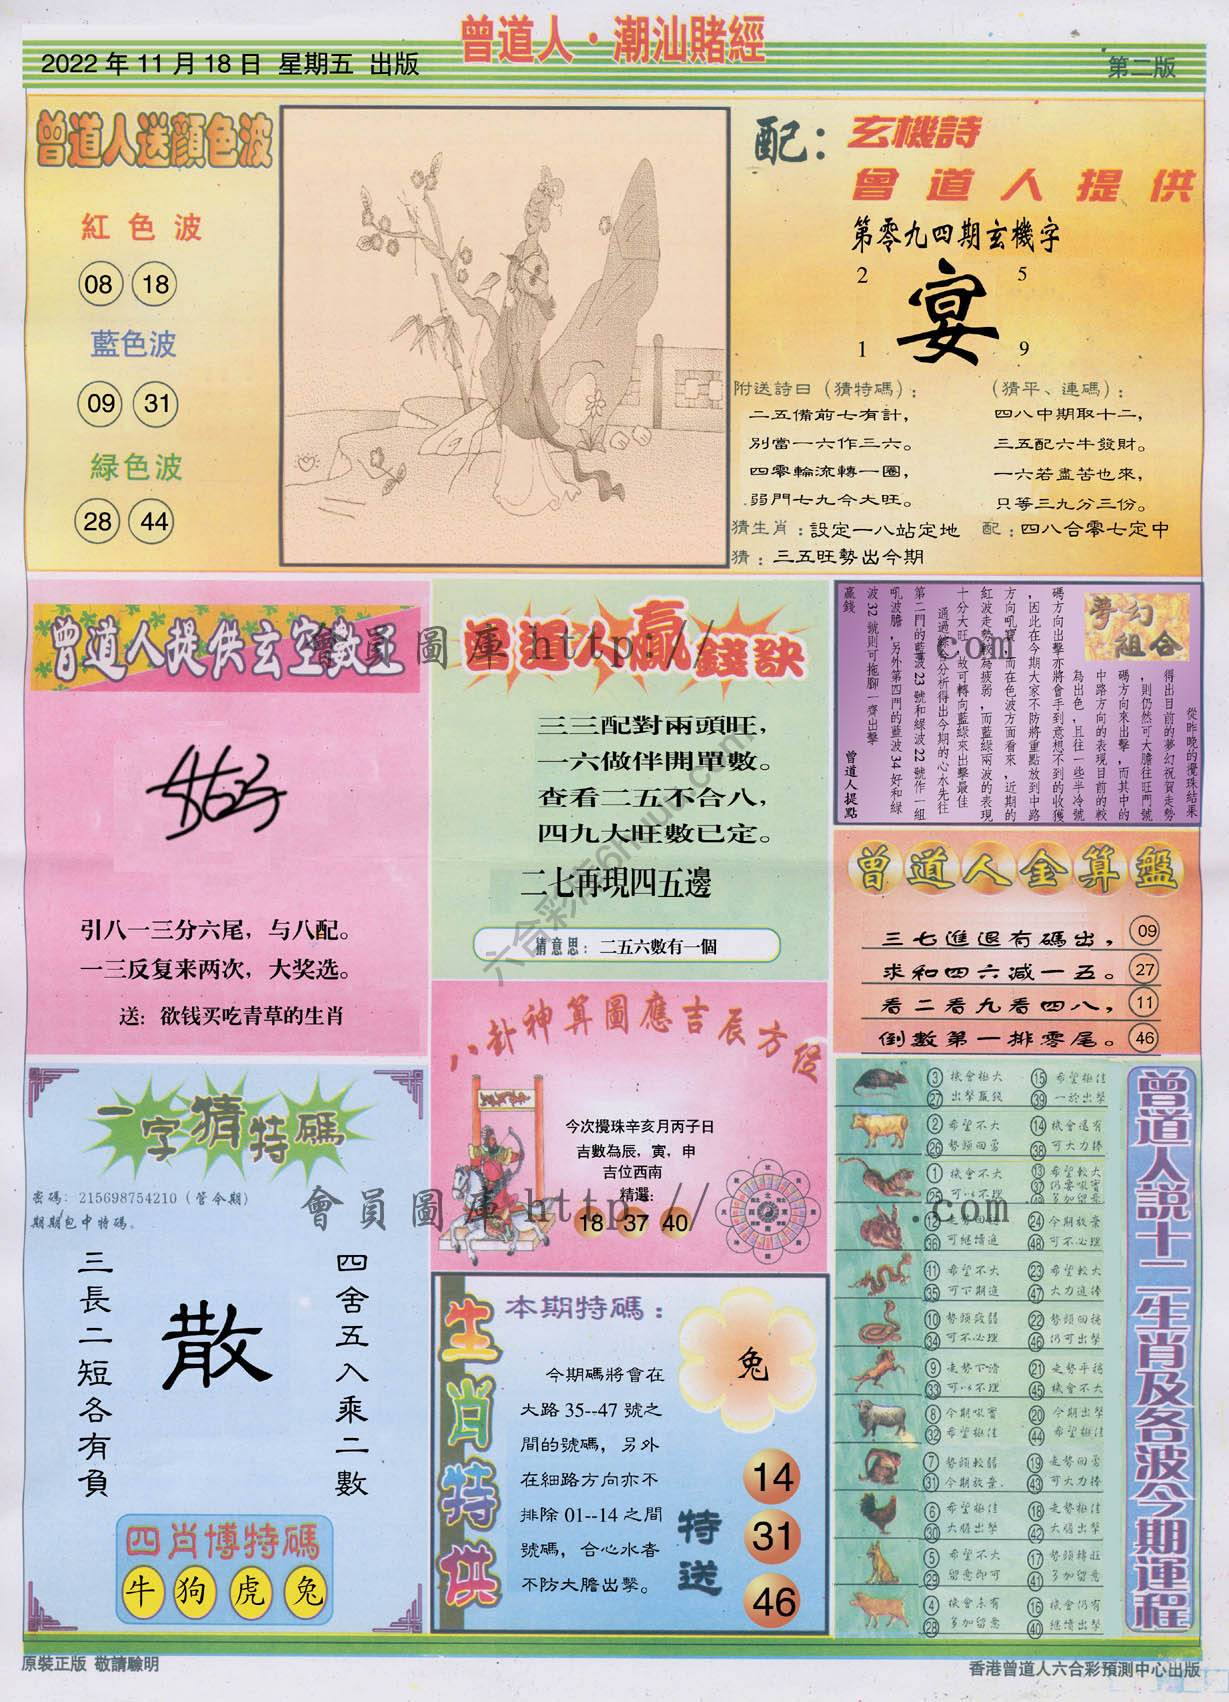 曾道人·潮汕賭經
2022年11月18日 星期五 出版
第二版
曾道人送顏色波
紅色波
08 18
藍色波
09 31
緑色波
28 44
配：
玄機詩
曾道人提供
第零九四期玄機字
2 5
宴
1 9
附送詩曰（猜特碼）：
二五備前七有計，
別當一六作三六。
四零輪流轉一圈，
弱門七九今大旺。
（猜平、連碼）：
四八中期取十二，
三五配六牛發財。
一六若盡苦也來，
只等三九分三份。
猜生肖：設定一八站定地
配：四八合零七定中
猜：三五旺勢出今期
曾道人提供玄空數王
引八一三分六尾，与八配。
一三反复来两次，大奖选。
送：欲钱买吃青草的生肖
曾道人贏錢訣
三三配對兩頭旺，
一六做伴開單數。
查看二五不合八，
四九大旺數已定。
二七再現四五邊
猜意思：二五六數有一個
夢幻組合
從昨晚的攪珠結果
得出目前的夢幻祝賀走勢
，則仍然可大膽往旺門號
碼方向來出擊，而其中的
中路方向的表現目前的較
為出色，且往一些半冷號
碼方向出擊亦將會手到意想不到的收獲
，因此在今期大家不防將重點放到中路
方向吼寶，而在色波方面看來，近期的
紅波走勢較為疲弱，而藍綠兩波的表現
十分大旺，故可轉向藍綠來出擊最佳
通過綜合分析得出今期的心水先往
第二門的藍波23號和綠波22號作一組
吼波膽，另外第四門的藍波34好和綠
波32號則可拖腳一齊出擊
贏錢
曾道人提點
曾道人金算盤
三七進退有碼出， 09
求和四六減一五。 27
看二看九看四八， 11
倒數第一排零尾。 46
一字猜特碼
密碼：215698754210（管今期）
期期包中特碼。
四舍五入乘二數
散
三長二短各有負
四肖博特碼
牛 狗 虎 兔
八卦神算圖應吉辰方位
今次攪珠辛亥月丙子日
吉數為辰，寅，申
吉位西南
精選：
18 37 40
生肖特供
本期特碼：
兔
今期碼將會在
大路35--47號之
間的號碼，另外
在細路方向亦不
排除01--14之間
號碼，合心水者
不防大膽出擊。
特送
14
31
46
曾道人説十二生肖及各波今期運程
3 機會極大 15 希望極佳
27 出擊贏錢 39 一於出擊
2 希望不大 14 機會還有
26 勢頭回勇 38 可大力捧
1 機會不大 13 希望較大
25 可以不理 37 仍要吼實
49 多加留意
12 走勢回旺 24 今期放棄
36 可繼續追 48 可不必理
11 希望不大 23 希望較大
35 可下期追 47 大力追捧
10 勢頭疲弱 22 勢頭回穩
34 可不必理 46 仍可出擊
9 走勢下滑 21 走勢平穩
33 可以不理 45 機會不大
8 今期吼實 20 今期出擊
32 希望極佳 44 希望極佳
7 勢頭較弱 19 走勢回勇
31 今期放棄 43 可大力捧
6 希望極佳 18 走勢極佳
30 大膽出擊 42 大膽出擊
5 希望不大 17 勢頭轉旺
29 留意即可 41 多加留意
4 機會未有 16 機會仍有
28 多加留意 40 繼續出擊
會員圖庫 http://
.com
會員圖庫 http://
.com
原裝正版 敬請驗明
香港曾道人六合彩預測中心出版